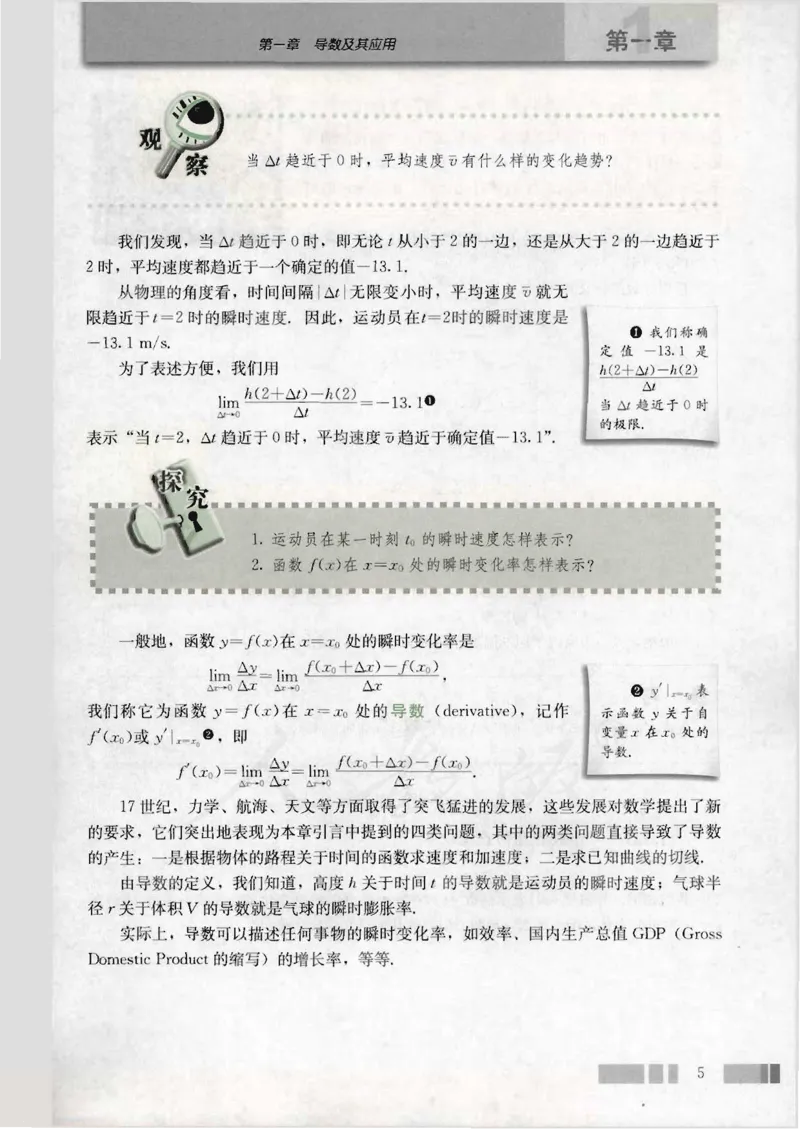 第一章 导数及其应用
第一章
观察
当 Δt 趋近于 0 时，平均速度 v̄ 有什么样的变化趋势？
我们发现，当 Δt 趋近于 0 时，即无论 t 从小于 2 的一边，还是从大于 2 的一边趋近于
2 时，平均速度都趋近于一个确定的值－13.1.
从物理的角度看，时间间隔|Δt|无限变小时，平均速度 v̄ 就无
限趋近于 t=2 时的瞬时速度. 因此，运动员在t=2时的瞬时速度是
－13.1 m/s.
为了表述方便，我们用
lim_{Δt→0} (h(2+Δt)－h(2))/Δt = －13.1❶
表示“当 t=2，Δt 趋近于 0 时，平均速度 v̄ 趋近于确定值－13.1”.
❶ 我们称确
定值 －13.1 是
(h(2+Δt)－h(2))/Δt
当 Δt 趋近于 0 时
的极限.
探究
1. 运动员在某一时刻 t₀ 的瞬时速度怎样表示？
2. 函数 f(x)在 x=x₀ 处的瞬时变化率怎样表示？
一般地，函数 y=f(x)在 x=x₀ 处的瞬时变化率是
lim_{Δx→0} Δy/Δx = lim_{Δx→0} (f(x₀+Δx)－f(x₀))/Δx，
我们称它为函数 y=f(x)在 x=x₀ 处的导数（derivative），记作
f′(x₀)或 y′|_{x=x₀}❷，即
f′(x₀)=lim_{Δx→0} Δy/Δx = lim_{Δx→0} (f(x₀+Δx)－f(x₀))/Δx.
❷ y′|_{x=x₀}表
示函数 y 关于自
变量 x 在 x₀ 处的
导数.
17 世纪，力学、航海、天文等方面取得了突飞猛进的发展，这些发展对数学提出了新
的要求，它们突出地表现为本章引言中提到的四类问题，其中的两类问题直接导致了导数
的产生：一是根据物体的路程关于时间的函数求速度和加速度；二是求已知曲线的切线.
由导数的定义，我们知道，高度 h 关于时间 t 的导数就是运动员的瞬时速度；气球半
径 r 关于体积 V 的导数就是气球的瞬时膨胀率.
实际上，导数可以描述任何事物的瞬时变化率，如效率、国内生产总值 GDP（Gross
Domestic Product 的缩写）的增长率，等等.
5